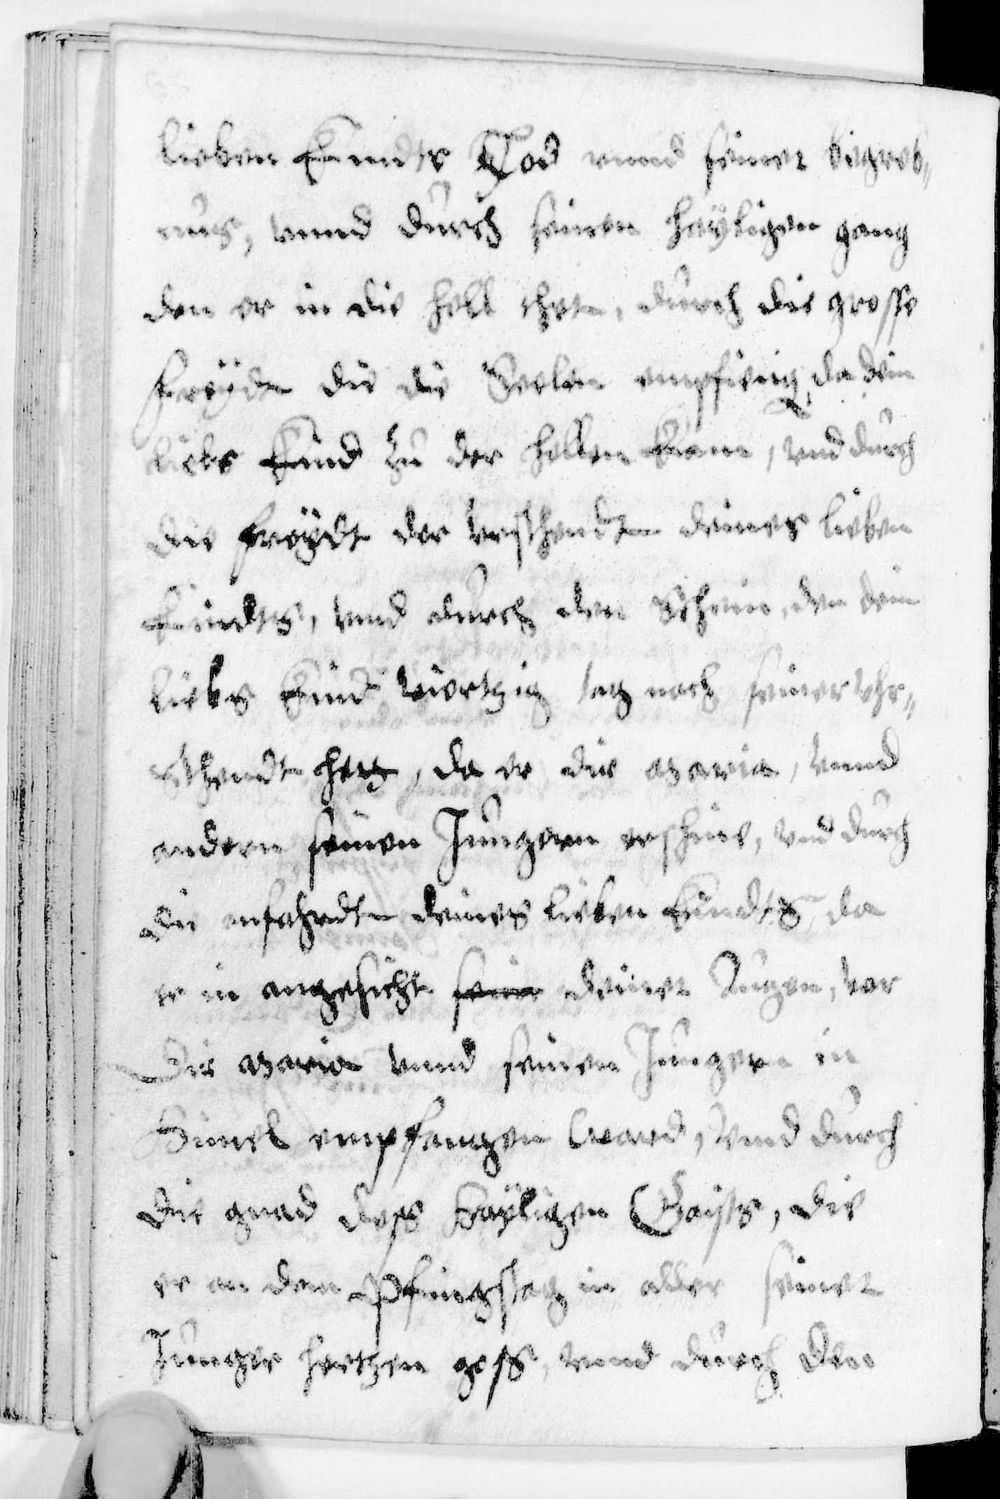 lieben Kindts Tod vnnd seiner begreb,,
nus, vnnd durch seinen hayligen gang
den er in die hell thete, durch die grosse
freydt die die Seelen empfieng, da dein
liebs Kind zu der hellen kam, vnd durch
die freydt der vrsthendt deines lieben
Kindts, vnnd durch den Schein, den dein
liebs Kind viertzig tag nach seiner vhr,,
sthendt hett, da er dir Maria, vnnd
andern seinen Jungern erschine, vnd durch
die auffahrdt deines lieben Kindts, da
er in angesicht deiner Augen, vor
dir Maria vnnd seinen Jungern in
Himel empfangen ward, vnnd durch
die gnad dess Hayligen Gaists, die
er an dem Pfingstag in aller seiner
Junger hertzen goss, vnnd durch den